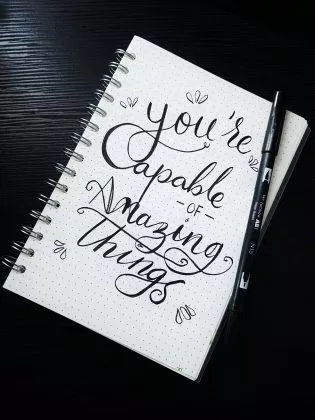 you're
Capable
-OF-
Amazing
things